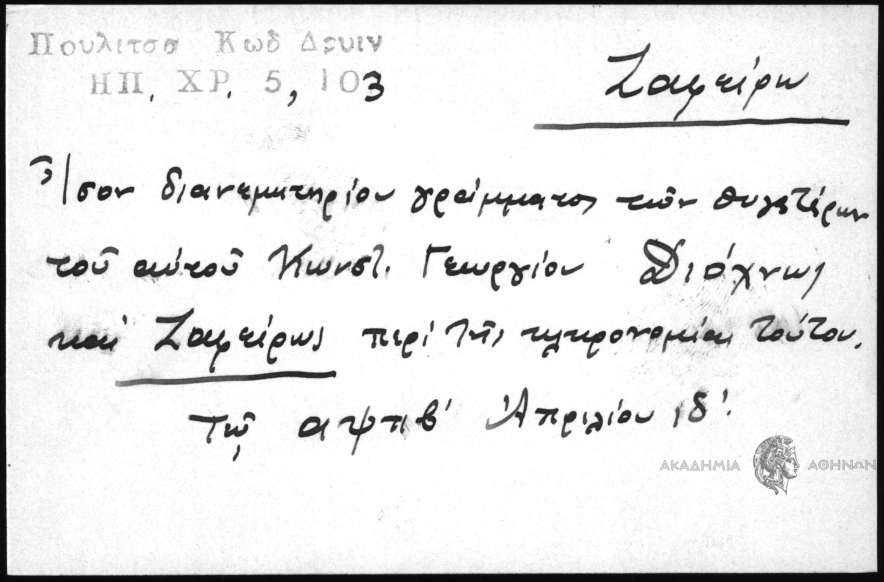 Πουλιτσα Κωδ Δρυιν
ΗΠ. ΧΡ. 5, 103
Ζαφείρω
Ἴσον διανεμητηρίου γράμματος τῶν θυγατέρων
τοῦ αὐτοῦ Κωνστ. Γεωργίου Διάχνως
καί Ζαφείρως περί τῆς κληρονομίας τούτου.
Τῷ αψπβ' Ἀπριλίου ιδ'.
ΑΚΑΔΗΜΙΑ ΑΘΗΝΩΝ